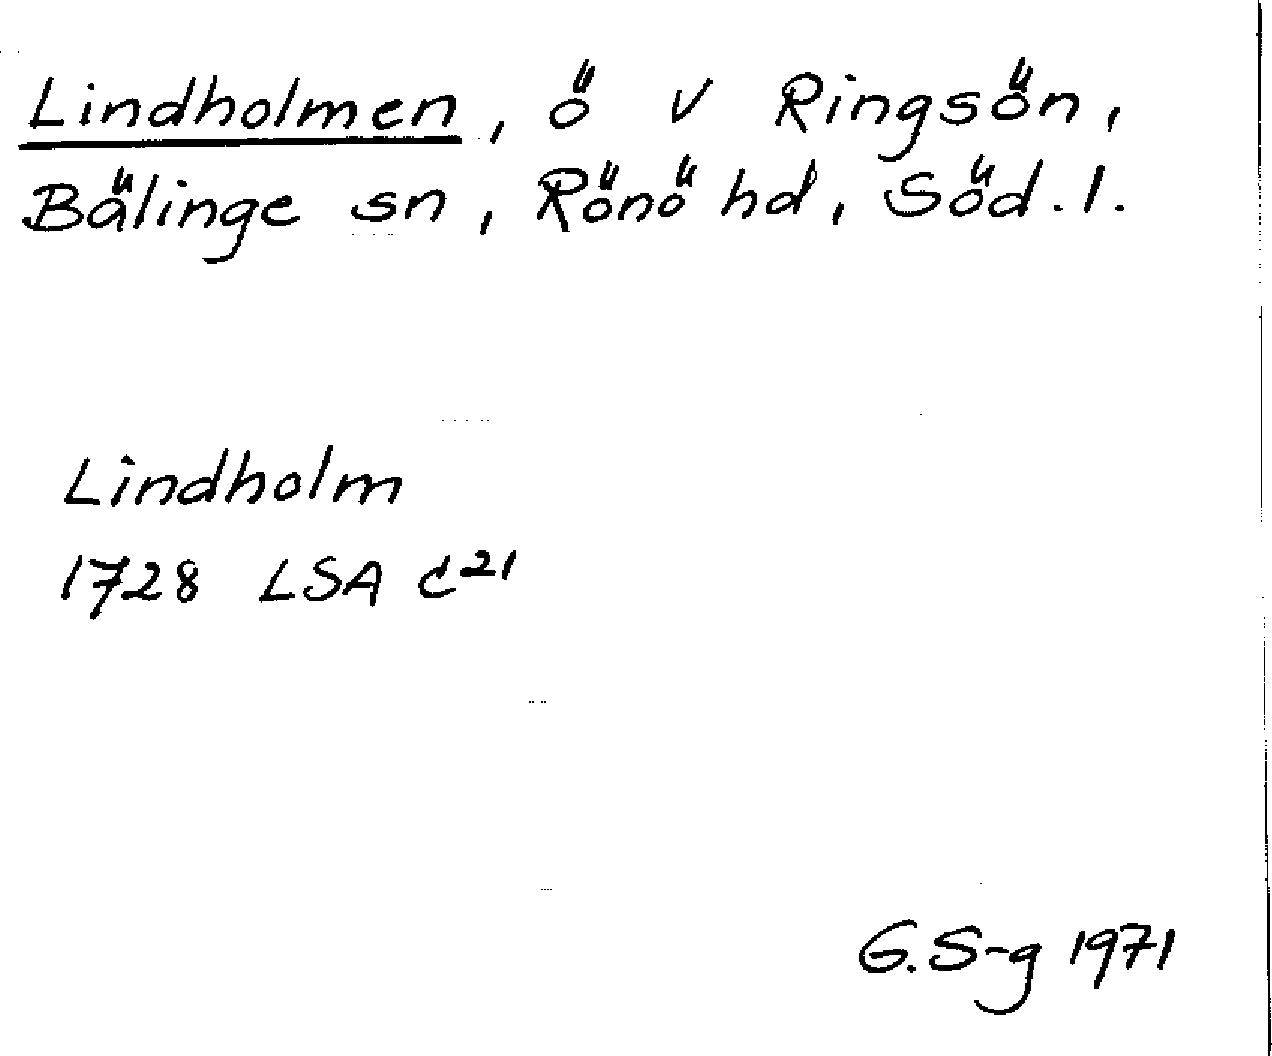 Lindholmen, ö v Ringsön,
Bälinge sn, Rönö hd, Söd. l.
Lindholm
1728 LSA C²¹
G. S-g 1971